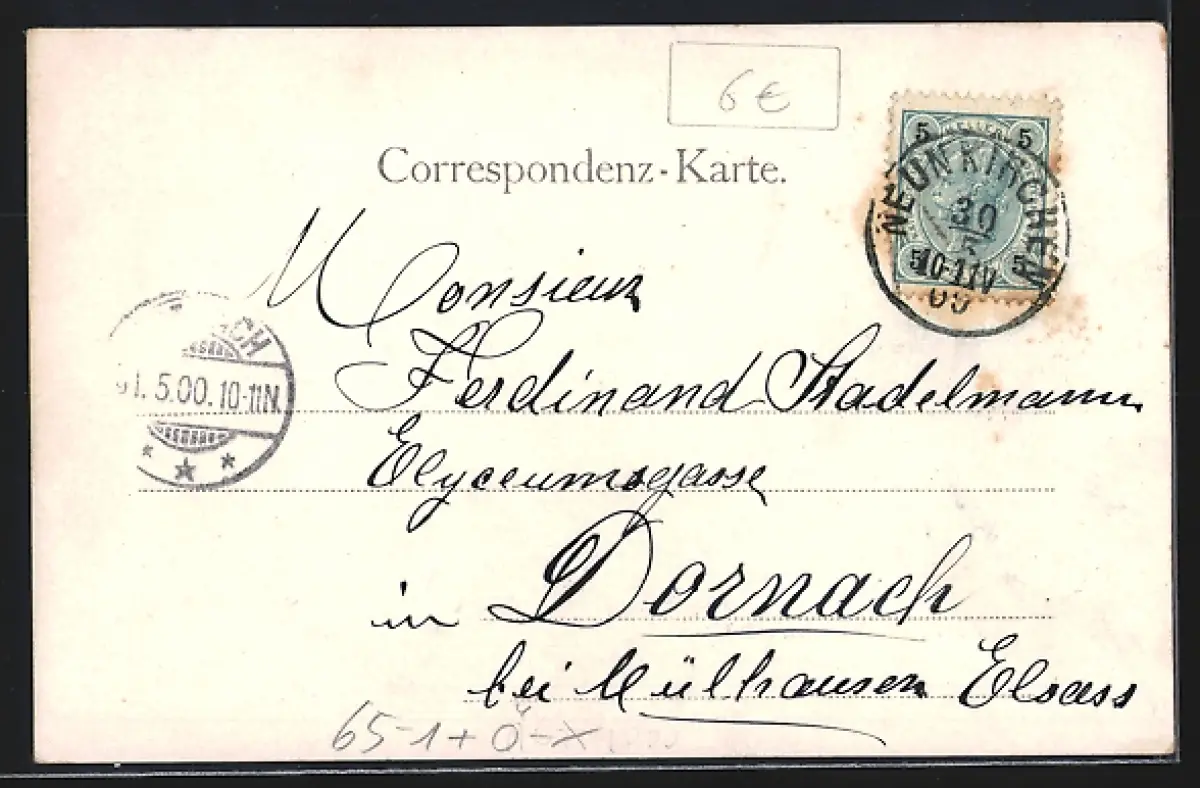 6 €
Correspondenz-Karte.
5 HELLER 5
NEUNKIRCHEN
30
5
10-11V
00
5 5
Monsieur
CH
31. 5.00. 10-11N.
Ferdinand Stadelmann
Elyceumsgasse
in Dornach
bei Mülhausen Elsass
65-1+Ö-X